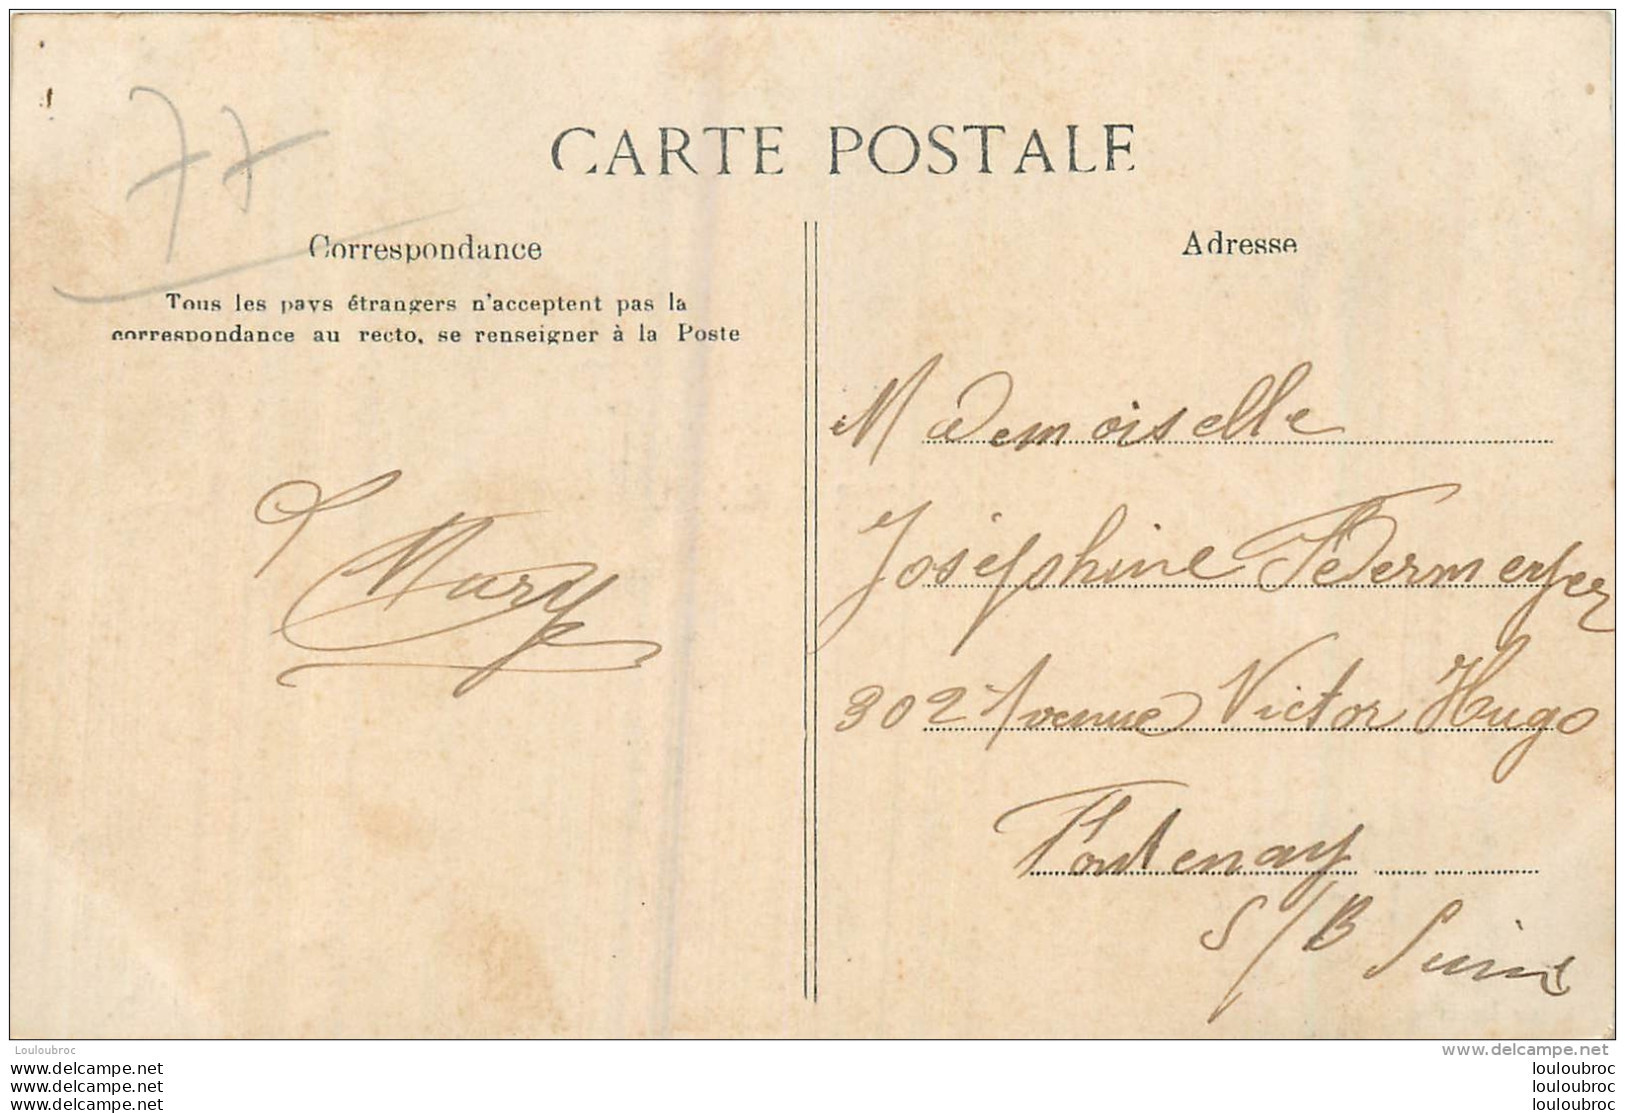 77
CARTE POSTALE
Correspondance
Tous les pays étrangers n'acceptent pas la
correspondance au recto, se renseigner à la Poste
Mary
Adresse
Mademoiselle
Joséphine Federmeyer
302 Avenue Victor Hugo
Fontenay
S/B Seine
Louloubroc
www.delcampe.net
www.delcampe.net
www.delcampe.net
www.delcampe.net
louloubroc
louloubroc
louloubroc